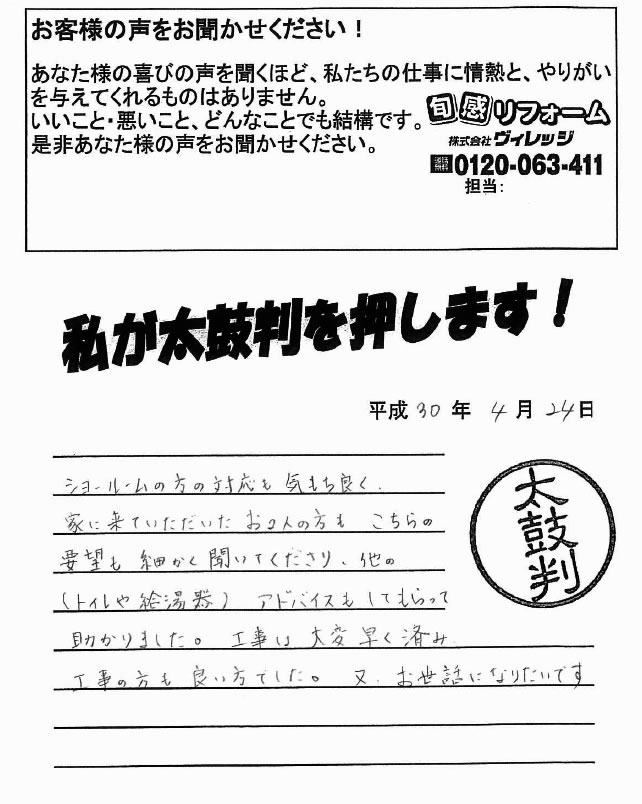 お客様の声をお聞かせください！
あなた様の喜びの声を聞くほど、私たちの仕事に情熱と、やりがい
を与えてくれるものはありません。
いいこと・悪いこと、どんなことでも結構です。
是非あなた様の声をお聞かせください。
旬感リフォーム
株式会社ヴィレッジ
通話無料 0120-063-411
担当:
私が太鼓判を押します！
平成 30 年 4 月 24 日
ショールームの方の対応も気もち良く、
家に来ていただいたお2人の方も こちらの
要望も細かく聞いてくださり、他の
(トイレや給湯器) アドバイスもしてもらって
助かりました。工事は大変早く済み
工事の方も良い方でした。又、お世話になりたいです
太鼓判